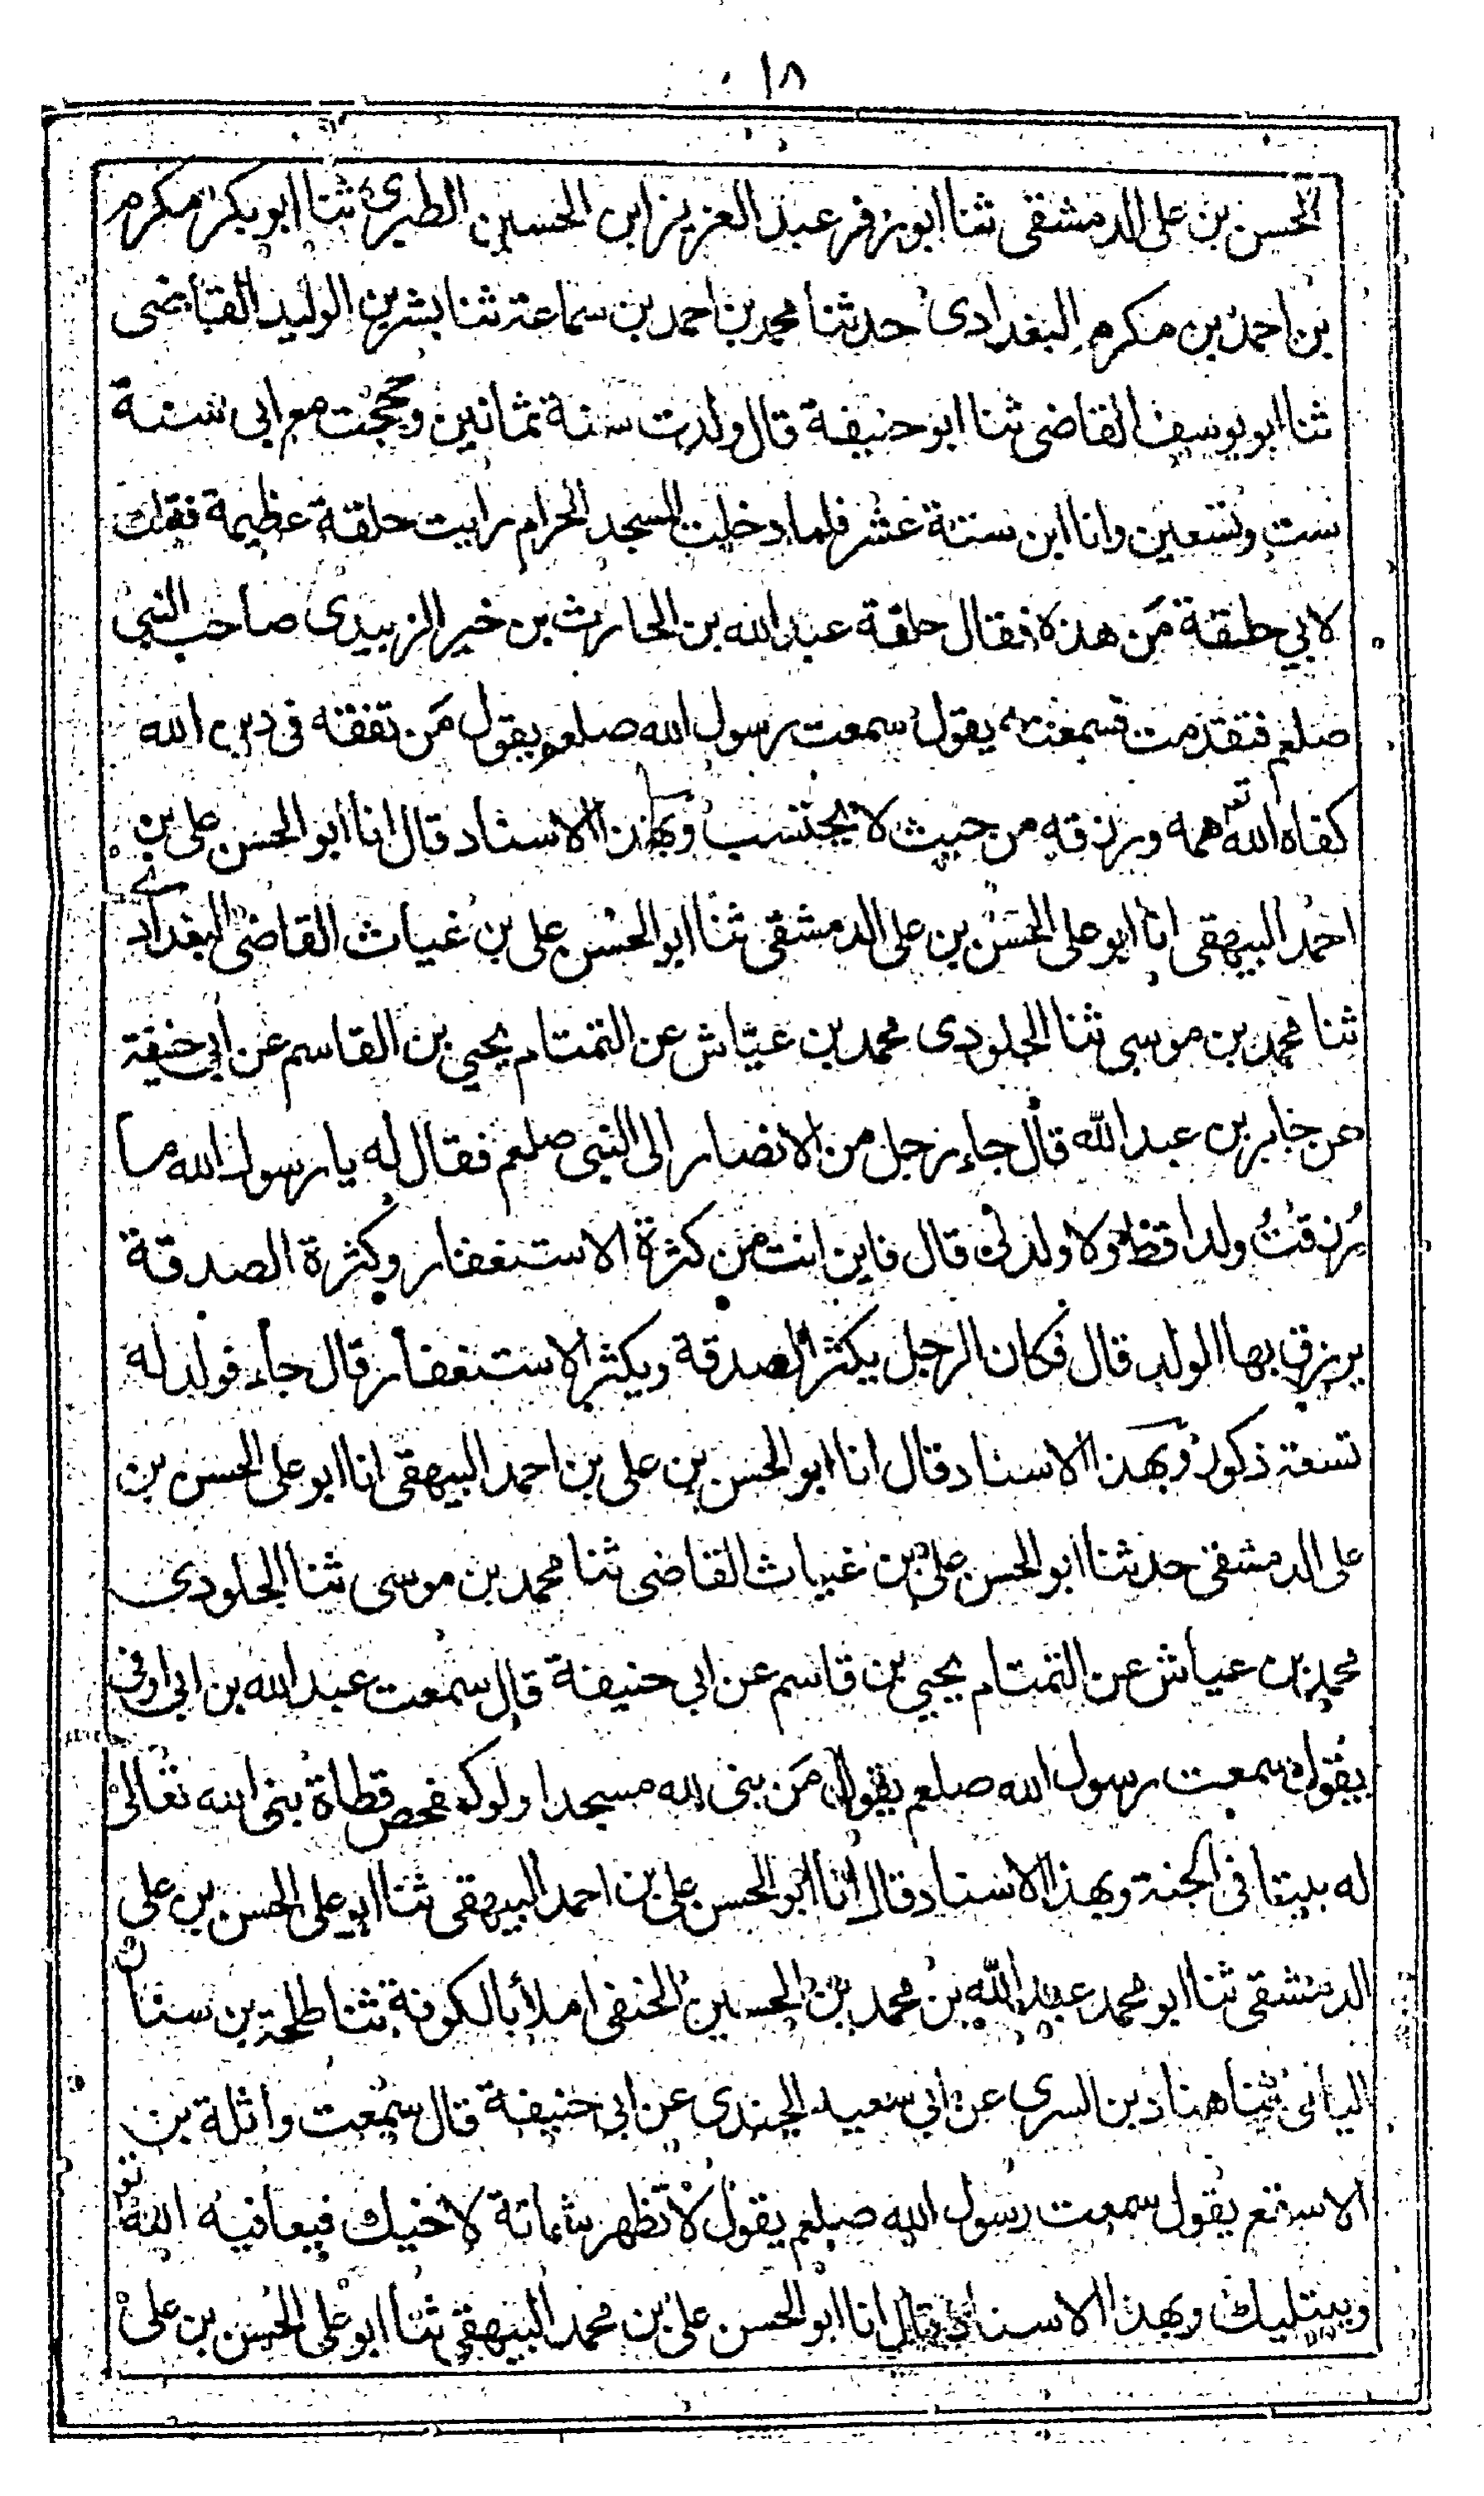 ١٨
الحسن بن على الدمشقى ثنا ابو زفر عبد العزيز ابن الحسين الطبرى ثنا ابو بكر مكرم
بن احمد بن مكرم البغدادى حدثنا محمد بن احمد بن سماعة ثنا بشر بن الوليد القاضى
ثنا ابو يوسف القاضى ثنا ابو حنيفة قال ولدت سنة ثمانين وحججت مع ابى سنة
ست وتسعين وانا ابن ستة عشر فلما دخلت المسجد الحرام رايت حلقة عظيمة فقلت
لابي حلقة مَن هذه فقال حلقة عبد الله بن الحارث بن خير الزبيدى صاحب النبي
صلعم فتقدمت فسمعته يقول سمعت رسول الله صلعم يقول مَن تفقه فى دين الله
كفاه الله تع همه ورزقه من حيث لا يحتسب وبهذا الاسناد قال انا ابو الحسن على بن
احمد البيهقى انا ابو على الحسن بن على الدمشقى ثنا ابو الحسن على بن غياث القاضى البغدادے
ثنا محمد بن موسى ثنا الجلودى محمد بن عيّاش عن التمتام يحيي بن القاسم عن ابى حنيفة
عن جابر بن عبد الله قال جاء رجل من الانصار الى النبى صلعم فقال له يا رسول الله ما
رُزقتُ ولدا قط ولا ولد لى قال فاين انت من كثرة الاستغفار وكثرة الصدقة
يرزق بها الولد قال فكان الرجل يكثر الصدقة ويكثر الاستغفار قال جاء فولد له
تسعة ذكور وبهذا الاسناد قال انا ابو الحسن بن على بن احمد البيهقى انا ابو على الحسن بن
على الدمشقى حدثنا ابو الحسن على بن غياث القاضى ثنا محمد بن موسى ثنا الجلودى
محمد بن عياش عن التمتام يحيي بن قاسم عن ابى حنيفة قال سمعت عبد الله بن ابى اوفى
يقول سمعت رسول الله صلعم يقول مَن بنى لله مسجدا ولو كمفحص قطاة بنى الله تعالى
له بيتا فى الجنة وبهذا الاسناد قال انا ابو الحسن على بن احمد البيهقى ثنا ابو على الحسن بن على
الدمشقى ثنا ابو محمد عبد الله بن محمد بن الحسين الحنفى املأ بالكوفة ثنا طلحة بن سنان
اليانى ثنا هناد بن السرى عن ابى سعيد الجندى عن ابى حنيفة قال سمعت واثلة بن
الاسقع يقول سمعت رسول الله صلعم يقول لا تظهر شماتة لاخيك فيعافيه الله تع
ويبتليك وبهذا الاسناد قال انا ابو الحسن على بن محمد البيهقى ثنا ابو على الحسن بن على